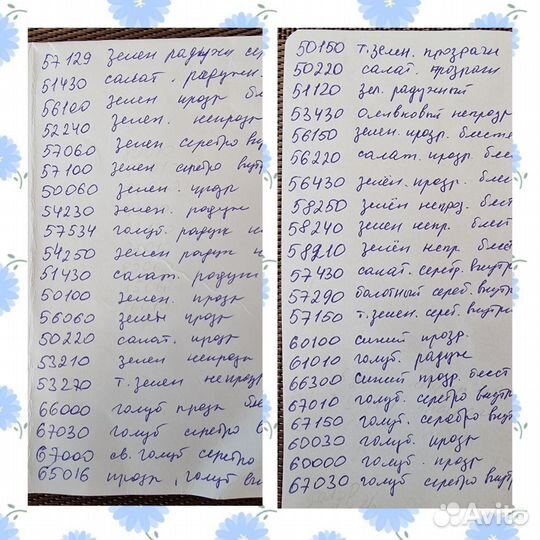 57129 зелен радужн сер
51430 салат. радужн.
56100 зелен прозр бле
52240 зелен. непрозр
57060 зелен серебро вну
57100 зелен серебро внутр
50060 зелен. прозр
54230 зелен. радуж
57534 голуб. радуж не
54250 зелен радуж н
51430 салат. радужн
50100 зелен. прозр
56060 зелен прозр
50220 салат. прозр
53210 зелен непрозр
53270 т. зелен непрозр
66000 голуб прозр бле
67030 голуб серебро в
67000 св. голуб серебро
65016 прозр, голуб вн
50150 т. зелен. прозрачн
50220 салат. прозрачн
51120 зел. радужный
53430 оливковый непрозр
56150 зелен. прозр. блестя
56220 салат. прозр. блес
56430 зелён. прозр. блест
58250 зелён непроз. блест
58240 зелен непр. блест
58210 зелён непр. блест
57430 салат. серебр. внутри
57290 болотный сереб. внутр
57150 т. зелен. сереб. внутри
60100 синий прозр.
61010 голуб. радуж
66300 синий прозр. блест
67010 голуб. серебро внутр
67150 голуб. серебро внут
60030 голуб. прозр
60000 голуб. прозр
67030 голуб серебро внутр
Avito